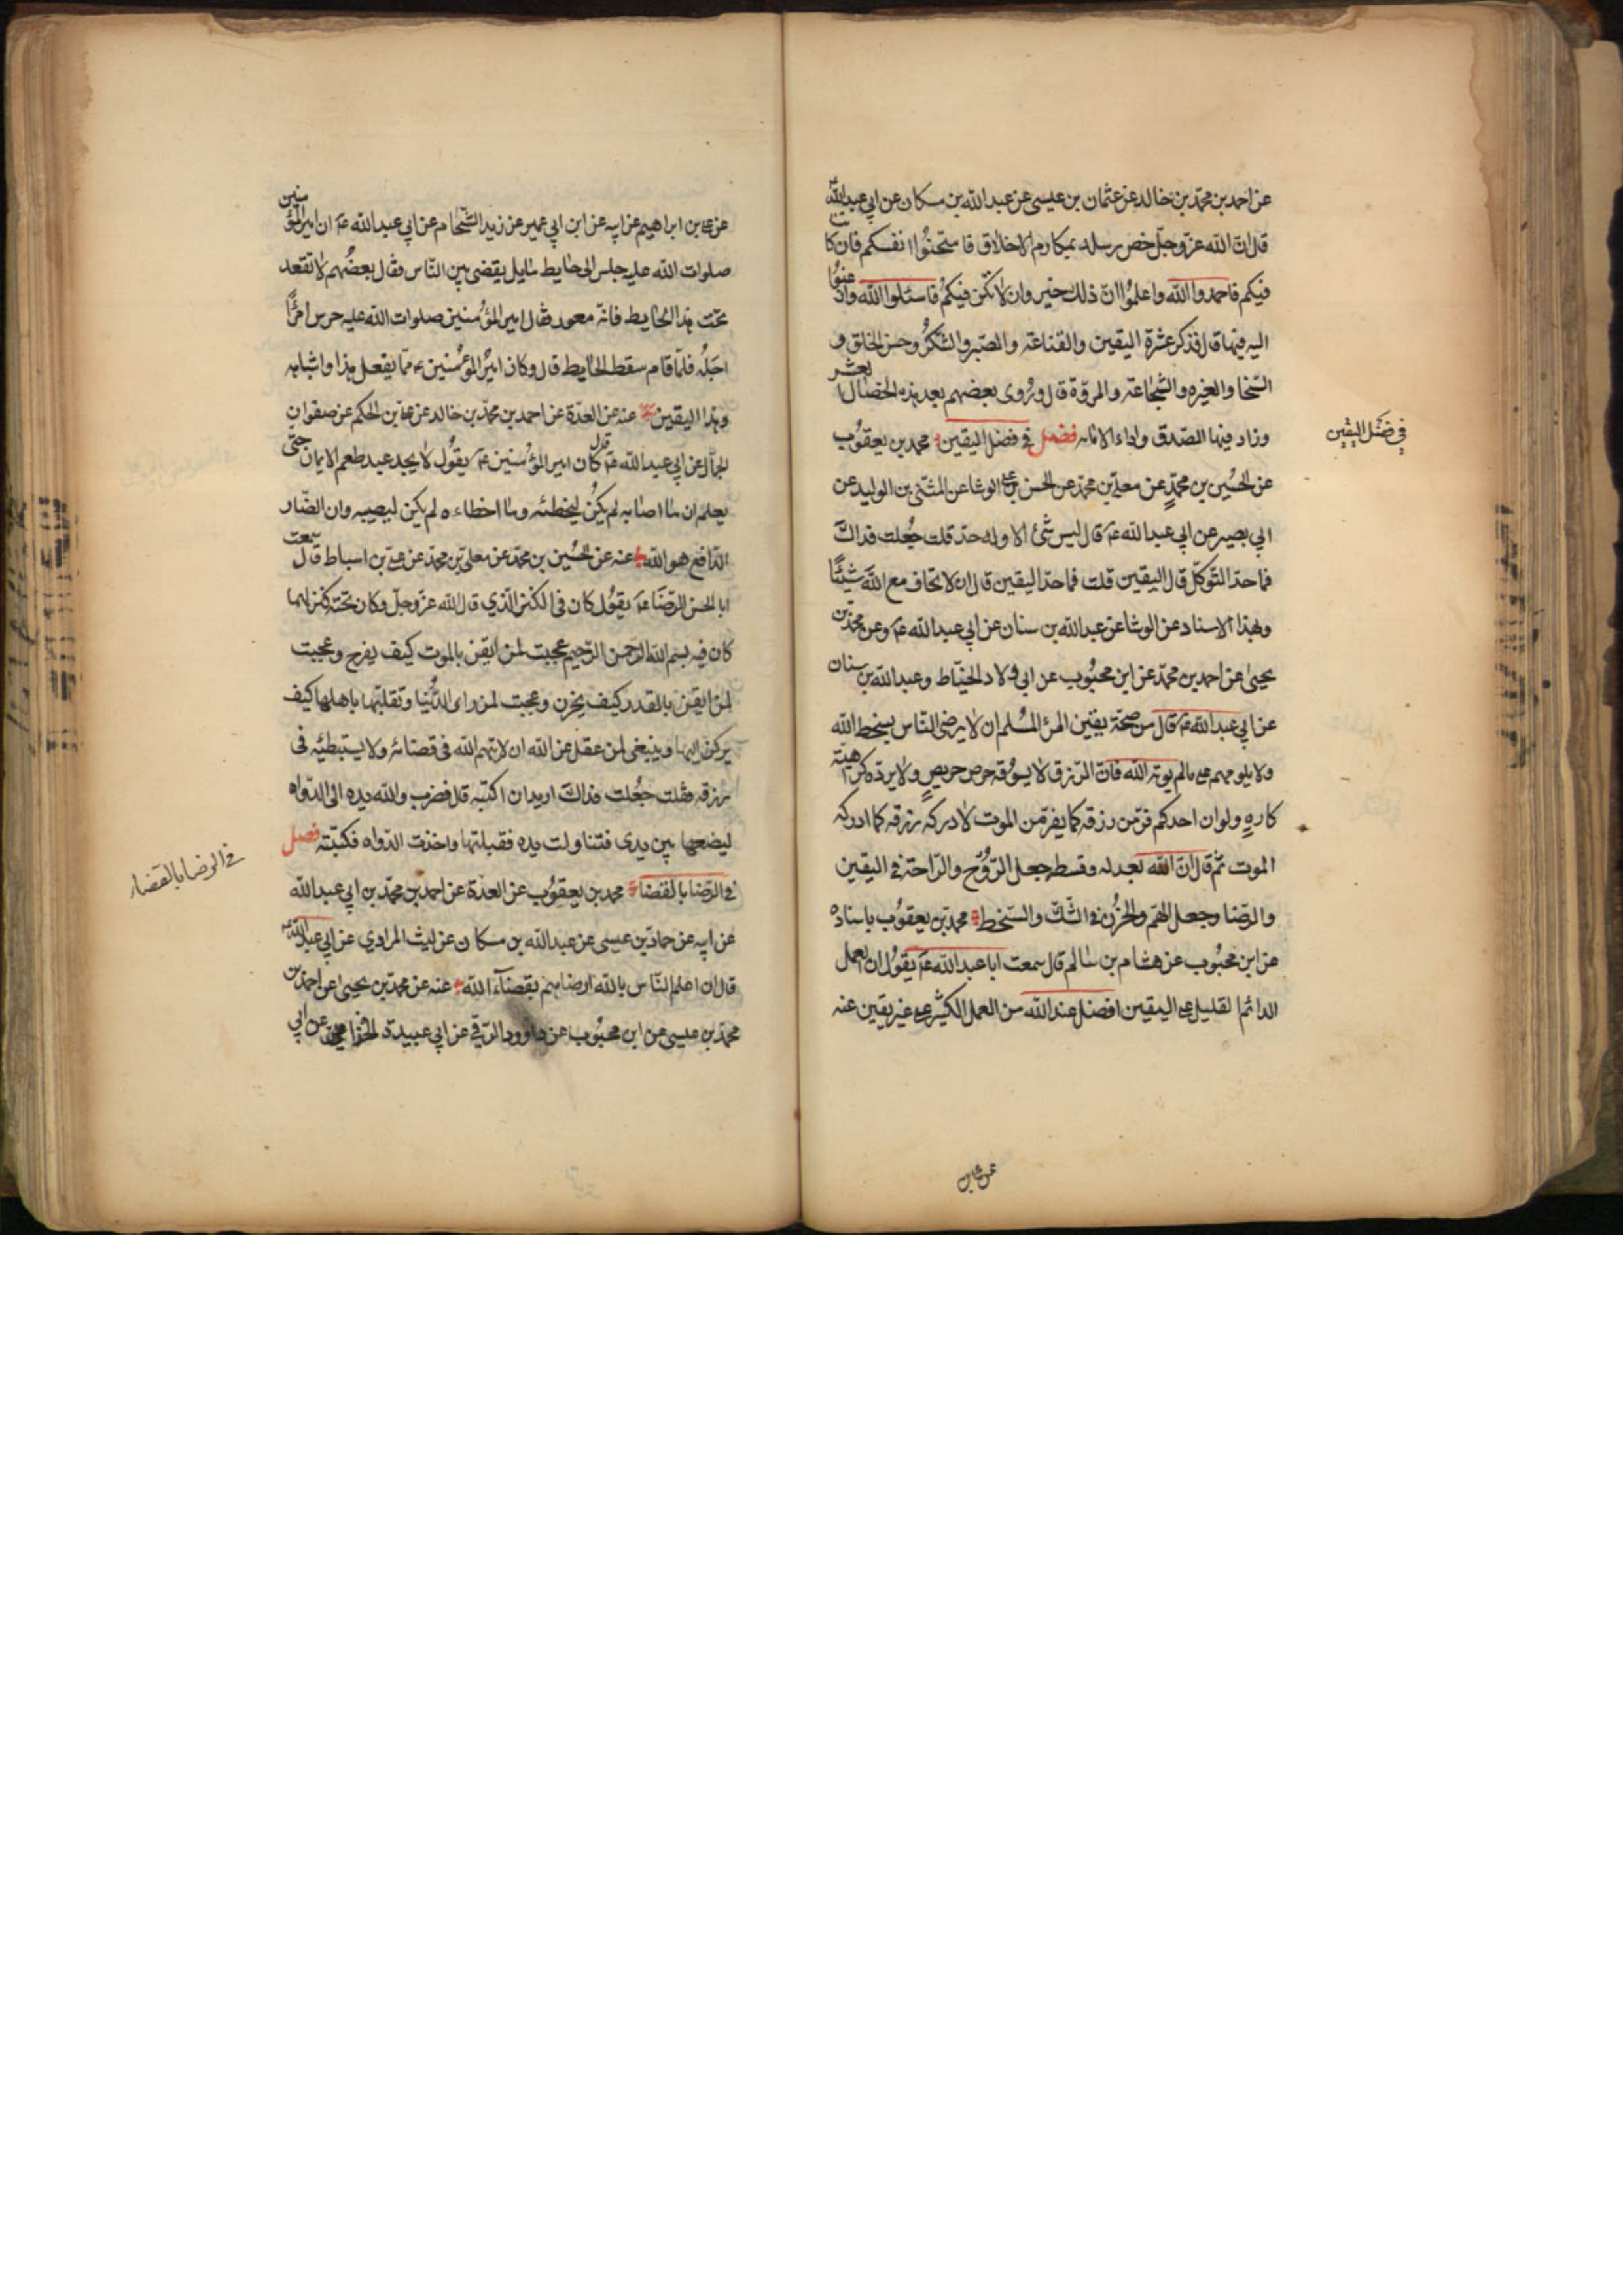 عن احمد بن محمد بن خالد عن عثمان بن عيسى عن عبدالله بن مسكان عن ابي عبدالله
قال ان الله عزّ وجلّ خص رسله بمكارم الاخلاق فاستحنوا انفسكم فان كانت
فيكم فاحمدوا الله واعلموا انّ ذلك خير وان لا تكن فيكم فاسئلوا الله وارغبوا
اليه فيها قال فذكر عشرة اليقين والقناعة والصّبر والشّكر وحسن الخلق و
السّخا والغيره والشّجاعة والمروّة قال وروى بعضهم بعد هذه الخصال العشر
وزاد فيها الصّدق واداء الامانه فصل في فضل اليقين محمد بن يعقوب
في فضل اليقين
عن الحُسين بن محمّدٍ عن معلّى بن محمّد عن الحسن بن على الوشا عن المثنّى بن الوليد عن
ابي بصير عن ابي عبد الله عَ قال ليس شئ الا وله حدّ قلت جُعلت فداك
فما حدّ التّوكّل قال اليقين قلت فما حدّ اليقين قال ان لا تخاف مع الله شيئًا
وبهذا الاسناد عن الوشا عن عبد الله بن سنان عن ابي عبد الله عَ وعن محمّد بن
يحيىٰ عن احمد بن محمّد عن ابن محبُوب عن ابى ولاد الحنّاط وعبد الله بن سنان
عن ابي عبد الله عَ قال من صحّة يقين المرئ المُسلم ان لا يرضى النّاس بسخط الله
ولا يلومهم على مالم يوته الله فانّ الرّزق لا يسُوقه حرص حريصٍ ولا يردّه كراهيّة
كارهٍ ولو ان احدكم فرّ من رزقه كما يفرّ من الموت لادركه رزقه كما ادركه
الموت ثمّ قال انّ الله بعدله وقسطه جعل الرّوُح والرّاحة في اليقين
والرّضا وجعل الهمّ والحُزُن في الشّك والسّخط محمد بن يعقوُب باسناده
عن ابن محبُوب عن هشام بن سالم قال سمعت ابا عبد الله عَ يقوُل ان العمل
الدائم القليل على اليقين افضل عند الله من العمل الكثير على غير يقين عنه
عن على بن
عن على بن ابراهيم عن ابيه عن ابن ابي عمير عن زيد الشّحّام عن ابي عبد الله عَ ان امير المؤمنين
صلوات الله عليه جلس الى حايط مايل يقضى بين النّاس فقال بعضُهم لا تقعد
تحت هذا الحايط فانّه معور فقال امير المؤُمنين صلوات الله عليه حرس امرًأ
اجَلُه فلمّا قام سقط الحايط قال وكان اميرُ المؤمنين ع ممّا يفعل هذا واشباهه
وهذا اليقين عنه عن العدّة عن احمد بن محمّد بن خالد عن على بن الحكم عن صفوان
الجمّال عن ابي عبد الله عَ قال كان امير المؤُمنين عَ يقوُل لا يجد عبد طعم الايمان حتى
يعلم ان ما اصابه لم يكنُ ليخطئه وما اخطاءه لم يكن ليصيبه وان الضّار
النّافع هو الله عنه عن الحُسين بن محمّد عن معلى بن محمّد عن على بن اسباط قال سمعت
ابا الحسن الرّضا عَ يقوُل كان فى الكنز الّذي قال الله عزّ وجلّ وكان تحته كنز لهما
كان فيه بسم الله الرّحمن الرّحيم عجبت لمن ايقن بالموت كيف يفرح وعجبت
لمن ايقن بالقدر كيف يحزن وعجبت لمن راى الدُّنيا وتقلبّها باهلها كيف
يركن اليها وينبغى لمن عقل عن الله ان لا يتهم الله فى قضائه ولا يستبطئه فى
رزقه فقلت جُعلت فداك اريد ان اكتبه قال فضرب والله يده الى الدّواه
ليضعها بين يدى فتناولت يده فقبلتها واخذت الدّواه فكتبته فصل
فى الرّضا بالقضا محمد بن يعقوُب عن العدّة عن احمد بن محمّد بن ابي عبد الله
في الرضا بالقضاء
عن ابيه عن حماد بن عيسى عن عبد الله بن مسكان عن ليث المرادي عن ابي عبد الله عَ
قال ان اعلم النّاس بالله ارضاهم بقضآء الله عنه عن محمّد بن يحيىٰ عن احمد بن
محمّد بن عيسى عن ابن محبُوب عن داوود الرّقي عن ابي عبيدة الحذا عن ابي